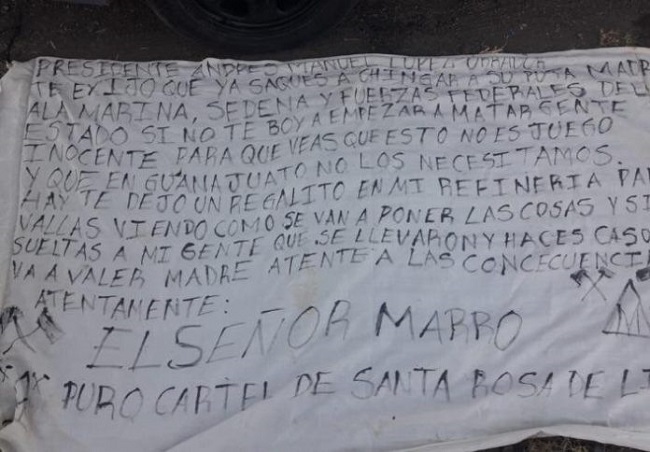 PRESIDENTE ANDRES MANUEL LOPEZ OBRADOR
TE EXIJO QUE YA SAQUES A CHINGAR A SU PUTA MADR
ALA MARINA, SEDENA Y FUERZAS FEDERALES DEL
ESTADO SI NO TE BOY A EMPEZAR A MATAR GENTE
INOCENTE PARA QUE VEAS QUE ESTO NO ES JUEGO
Y QUE EN GUANAJUATO NO LOS NECESITAMOS.
HAY TE DEJO UN REGALITO EN MI REFINERIA PA
VALLAS VIENDO COMO SE VAN A PONER LAS COSAS Y SI
SUELTAS A MI GENTE QUE SE LLEVARON Y HACES CASO
VA A VALER MADRE ATENTE A LAS CONCECUENCI
ATENTAMENTE:
EL SEÑOR MARRO
M
PURO CARTEL DE SANTA ROSA DE LI